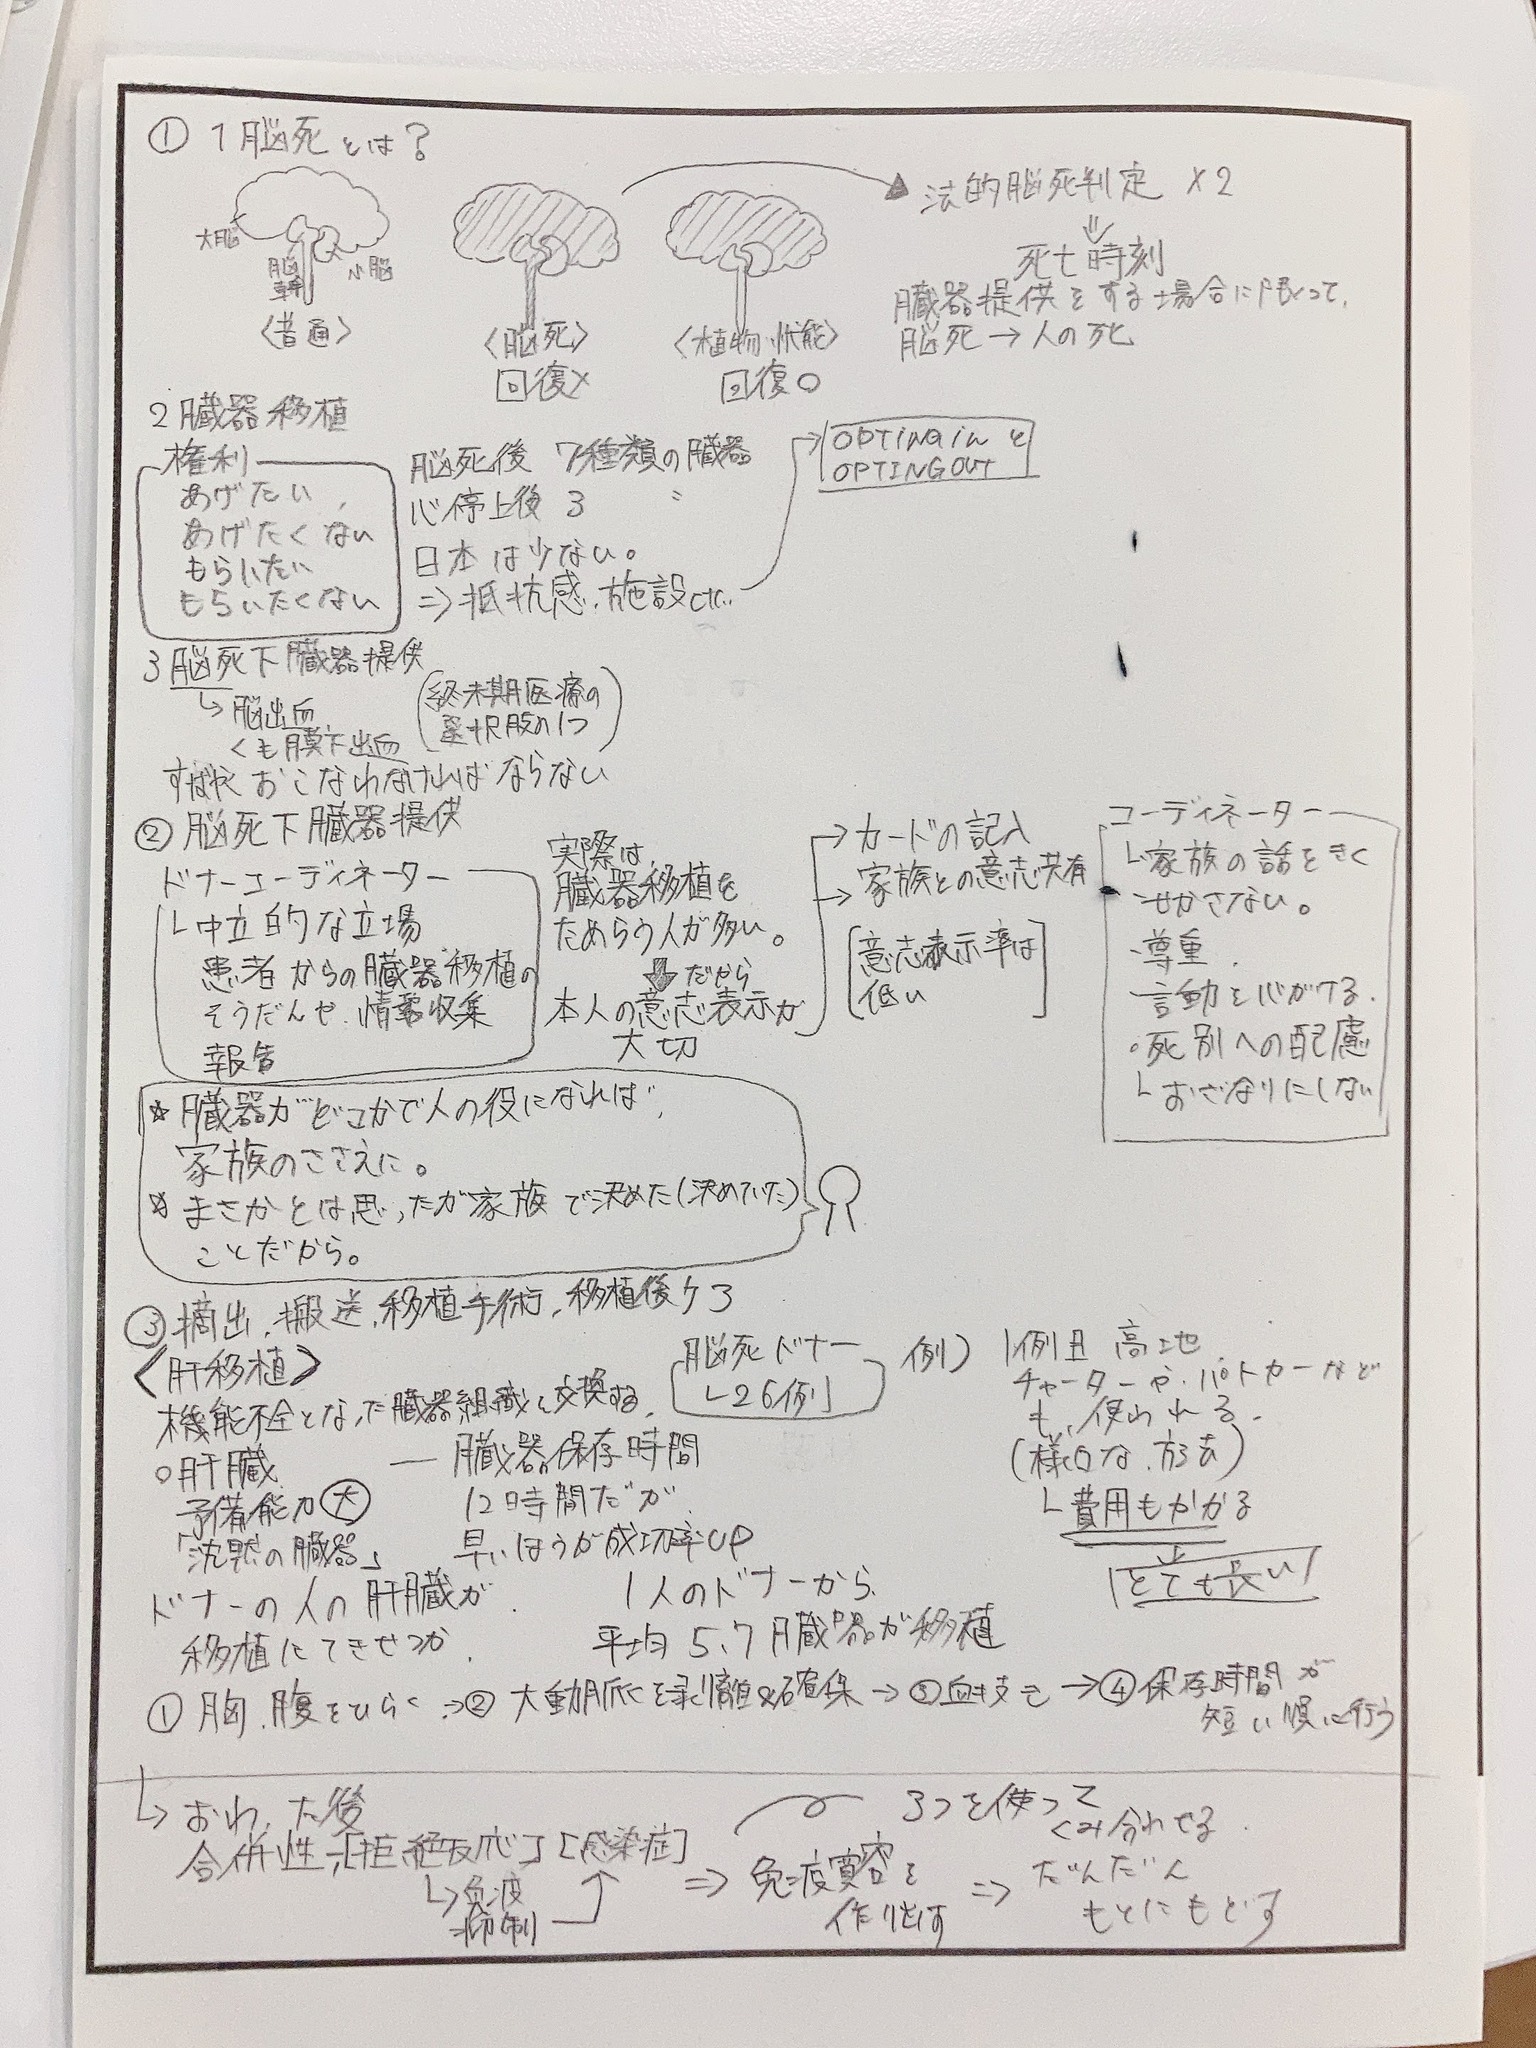 ① 1 脳死とは?
大脳
脳幹
小脳
〈普通〉
〈脳死〉
回復×
〈植物状態〉
回復○
法的脳死判定 ×2
⇓
死亡時刻
臓器提供をする場合に限って、
脳死→人の死
2 臓器移植
権利
あげたい、
あげたくない
もらいたい
もらいたくない
脳死後 7種類の臓器
心停止後 3 〃
日本は少ない。
⇒抵抗感、施設
OPTINGinと
OPTINGOUT
3 脳死下臓器提供
↳脳出血
くも膜下出血
(終末期医療の
選択肢の1つ)
すばやくおこなわなければならない
② 脳死下臓器提供
ドナーコーディネーター
└中立的な立場
患者からの臓器移植の
そうだんや、情報収集
報告
実際は
臓器移植を
ためらう人が多い。
⇓だから
本人の意志表示が
大切
→カードの記入
→家族との意志共有
[意志表示率は
低い]
コーディネーター
└家族の話をきく
せかさない。
・尊重、
言動を心がける。
○死別への配慮
└おざなりにしない
☆臓器がどこかで人の役になれば、
家族のささえに。
☆まさかとは思ったが家族で決めた(決めていた)
ことだから。
③摘出、搬送、移植手術、移植後ケア
〈肝移植〉
機能不全となった臓器組織と交換する。
○肝臓
予備能力大
「沈黙の臓器」
ドナーの人の肝臓が
移植にてきせつか
脳死ドナー
└26例
― 臓器保存時間
12時間だが
早いほうが成功率UP
1人のドナーから
平均 5.7臓器が移植
例) 1例目 高地
チャーターや、パトカーなど
も、使われる。
(様々な方法)
└費用もかかる
とても長い
① 胸、腹をひらく→② 大動脈を剥離&確保→③血抜き→④保存時間が
短い順に行う
↳おわった後
合併性、[拒絶反応] [感染症]
↳免疫
抑制
⇒ 免疫寛容を
作り出す
3つを使って
くみ合わせる
⇒ だんだん
もとにもどす